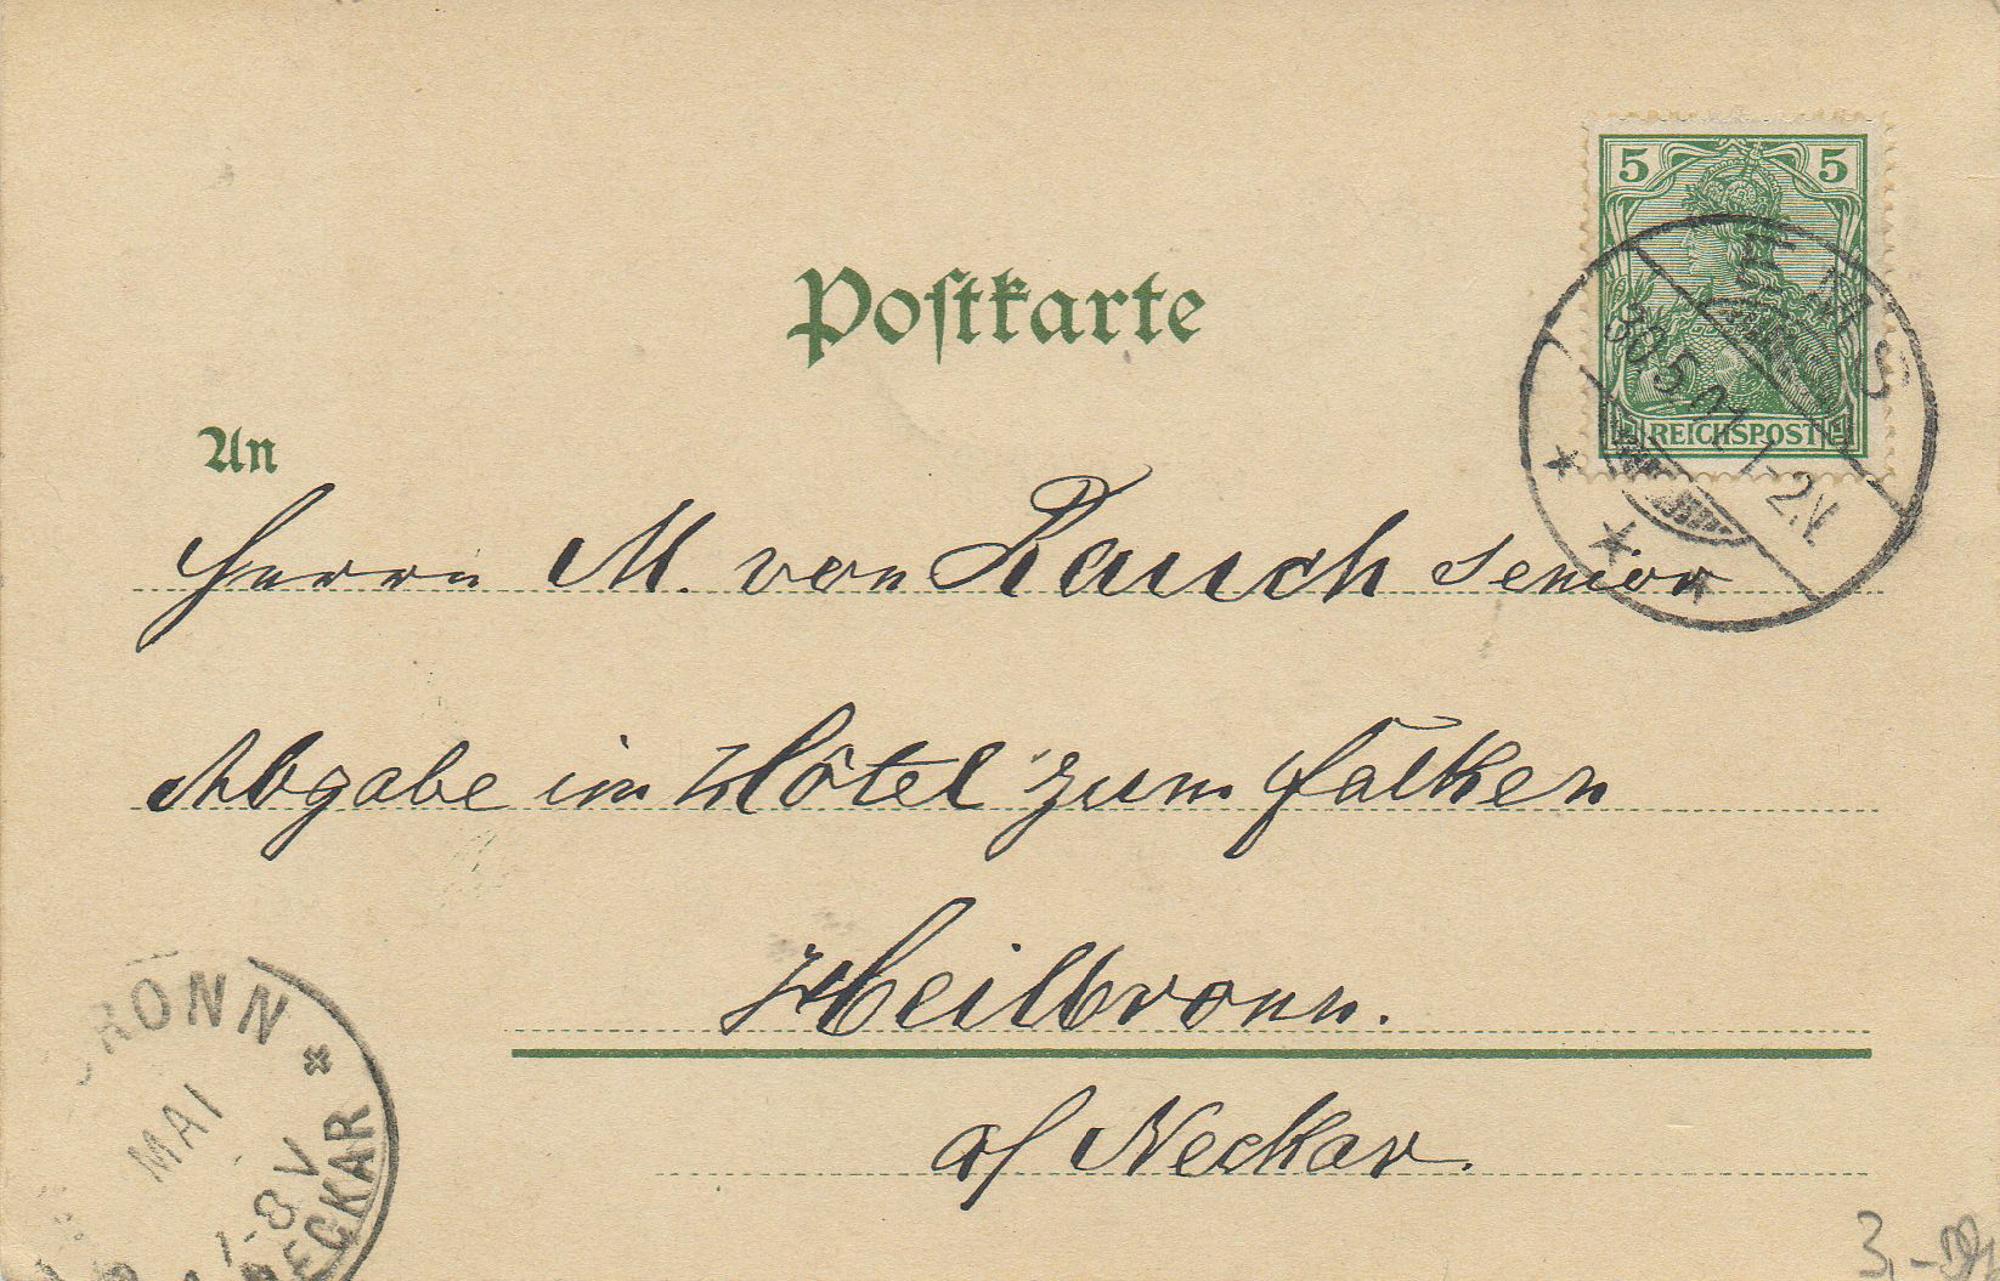 Postkarte
5 5
REICHSPOST
EMS
30.5.01 1-2N.
An
Herrn M. von Rauch senior
Abgabe im Hôtel zum Falken
Heilbronn.
a/ Neckar.
BRONN *
MAI
7-8V
NECKAR
3,-